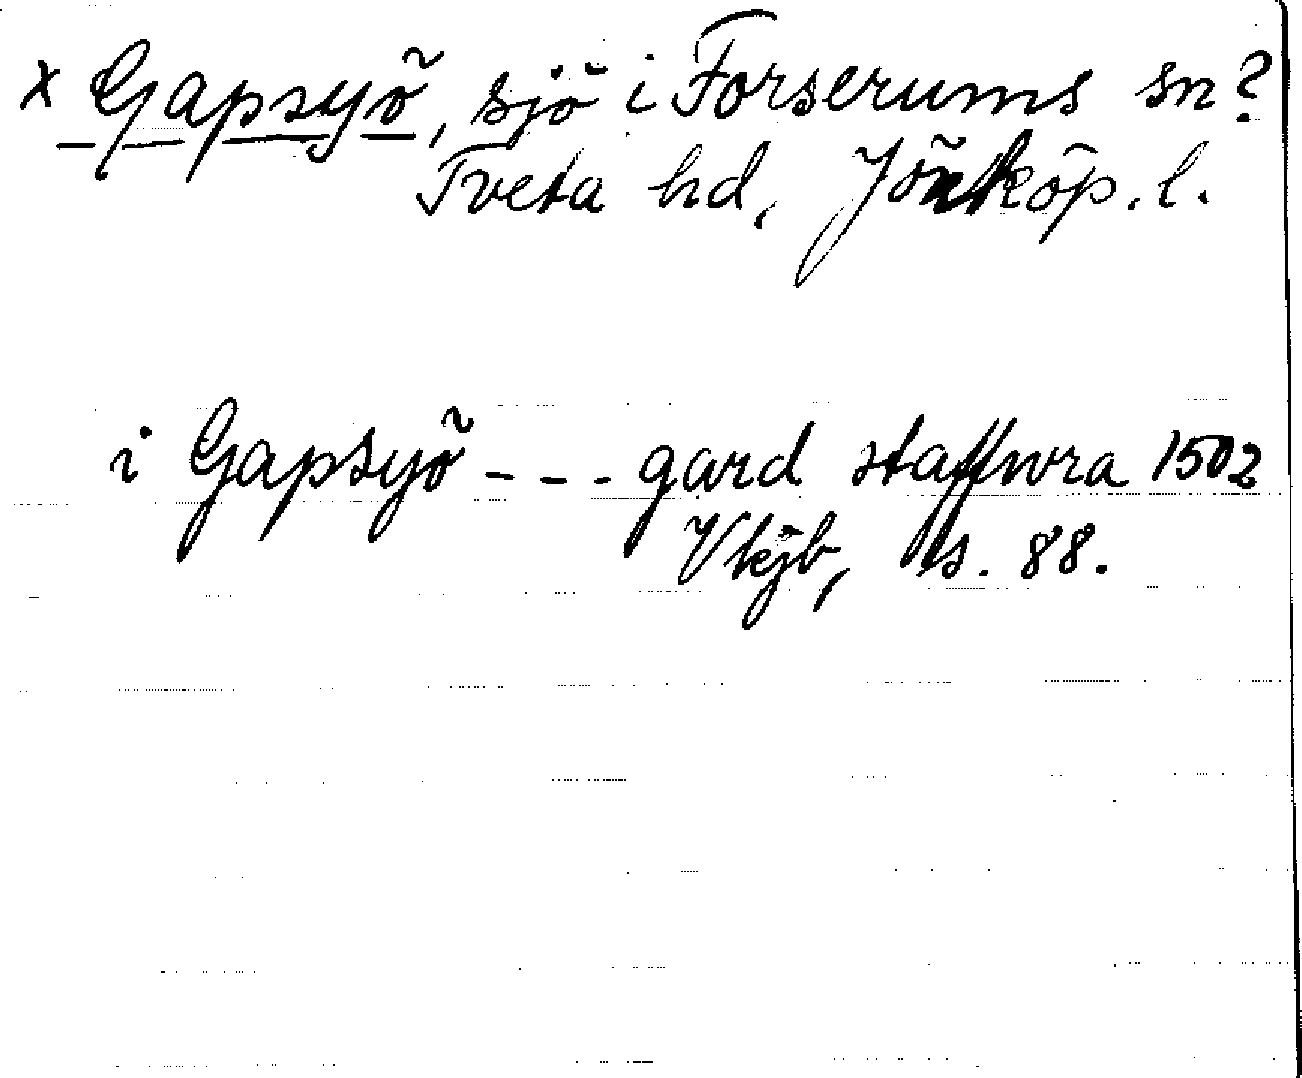 x Gapsyö, sjö i Forserums sn?
Tveta hd, Jönköp. l.
i Gapsyö - - - gard staffwra 1502
Vkjb, s. 88.